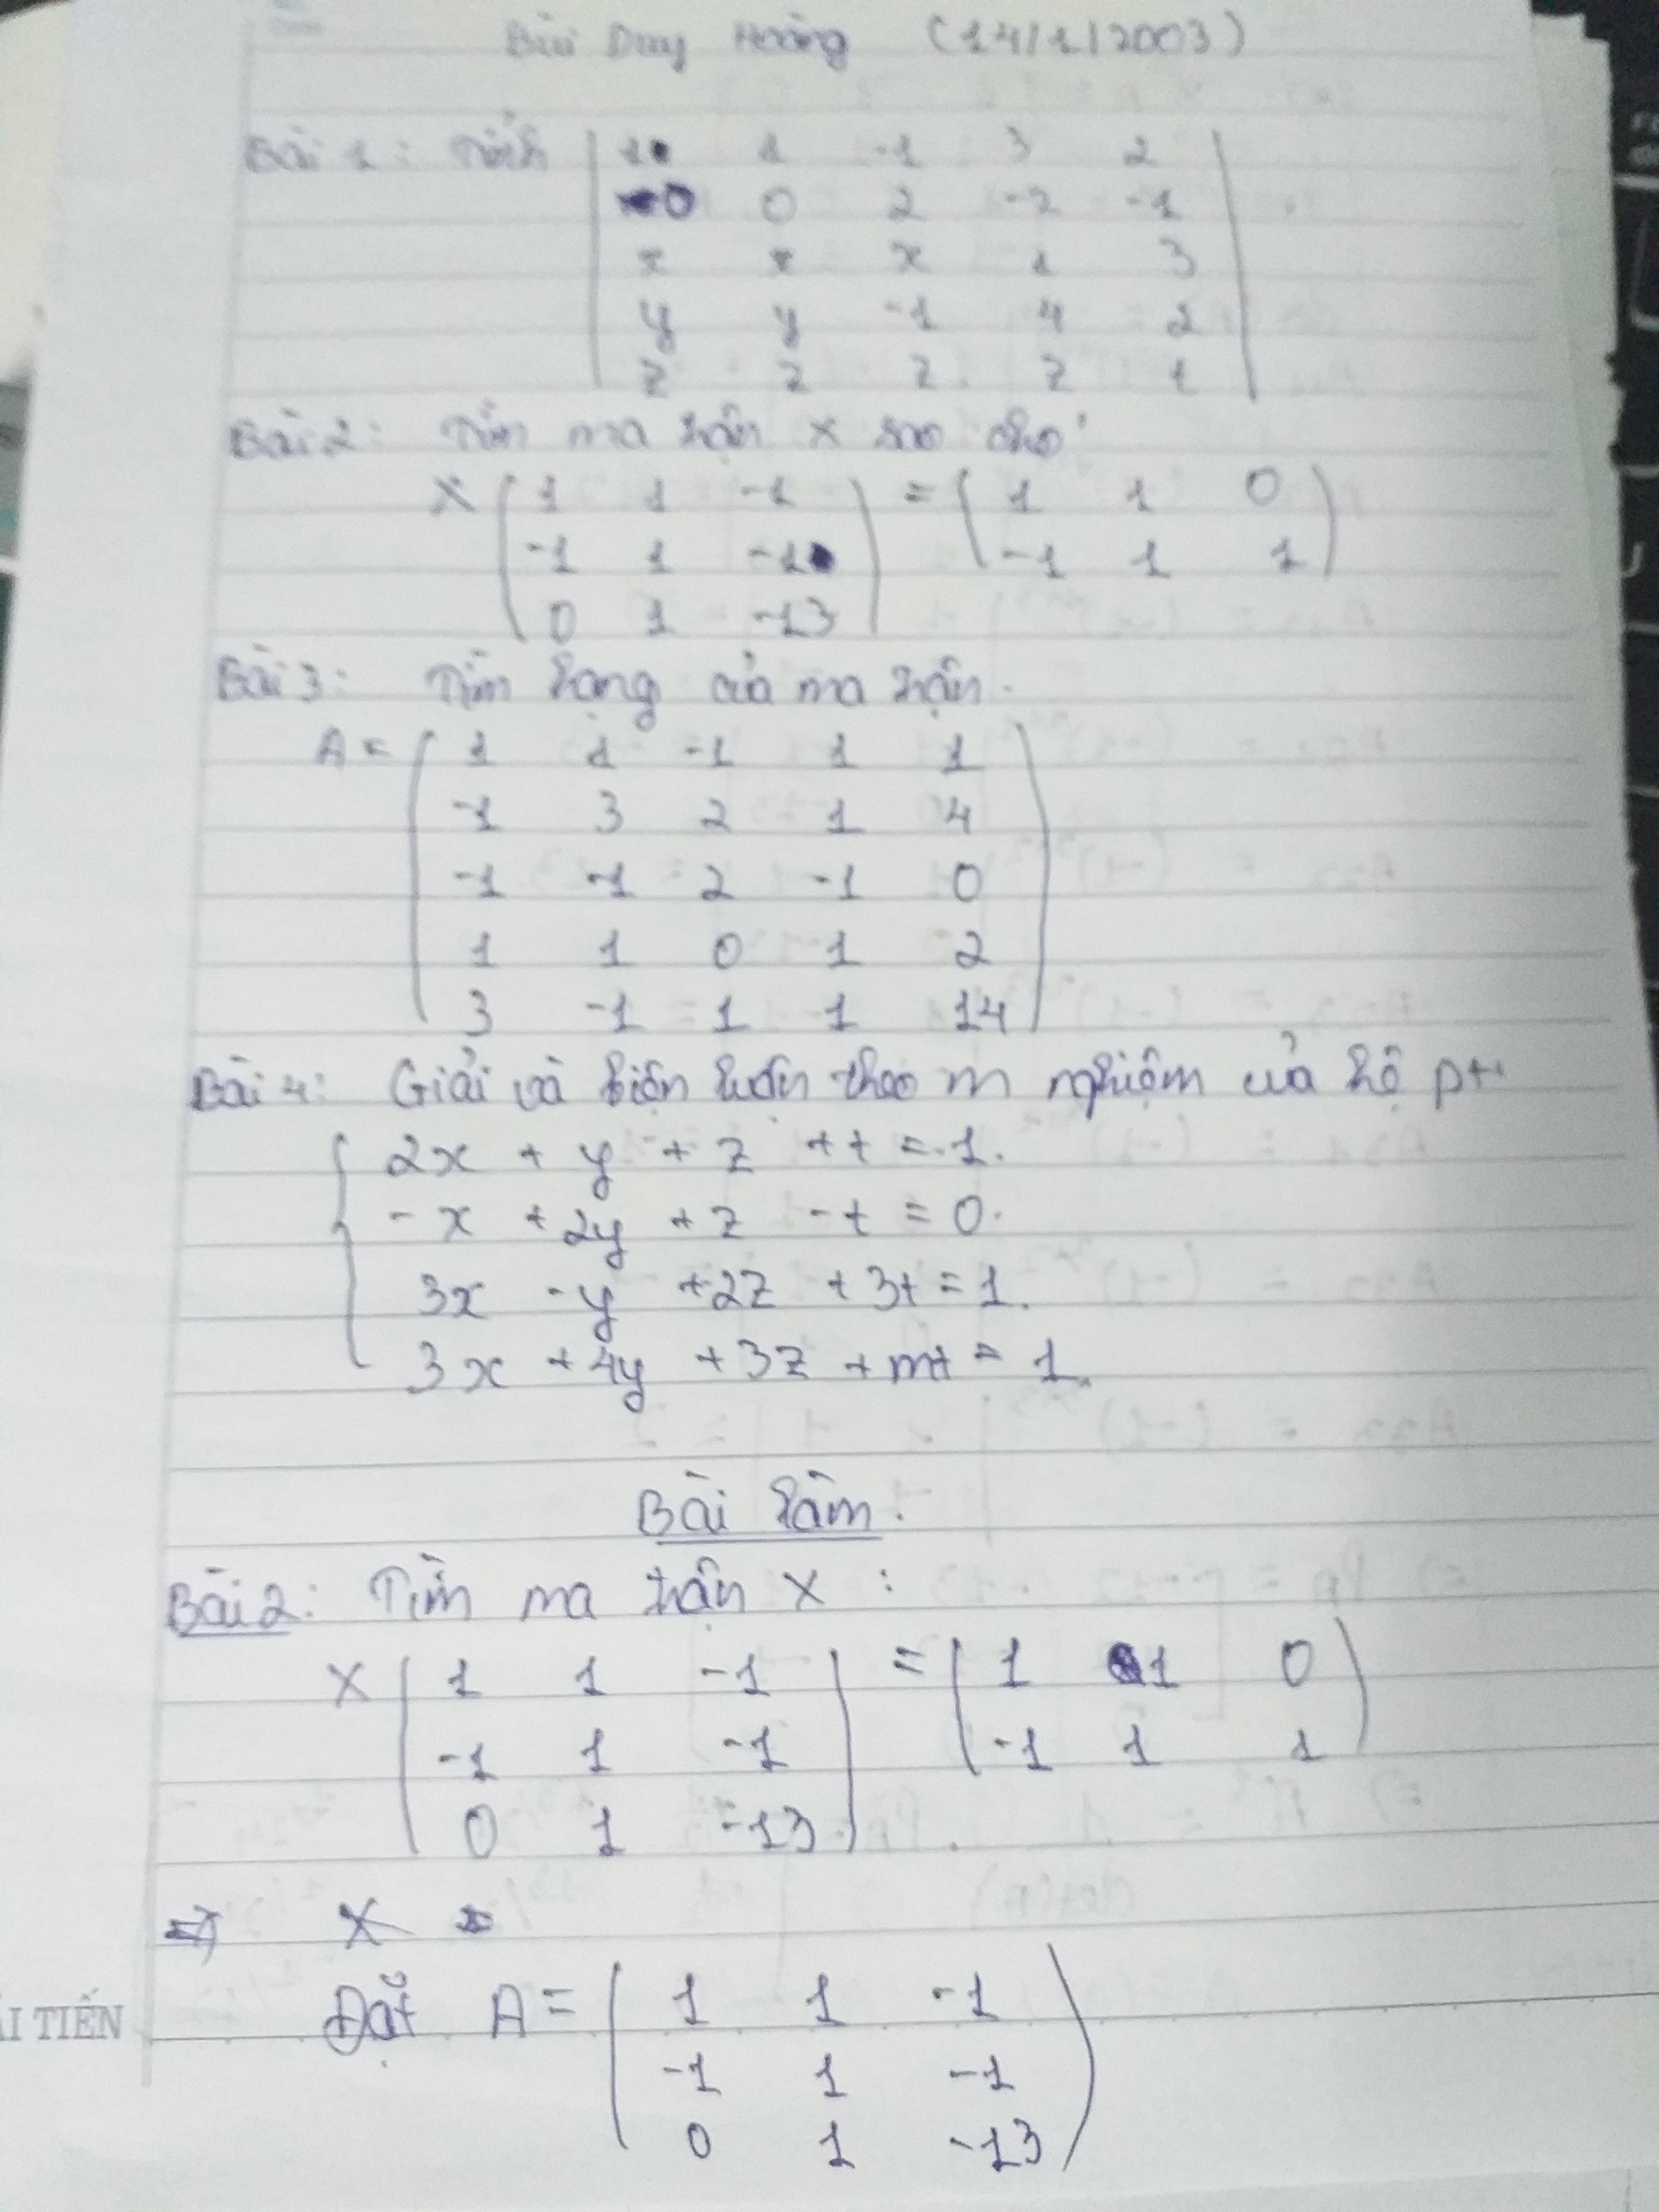 Bùi Duy Hoàng (14/1/2003)
Bài 1: Tính | 1 1 -1 3 2 |
0 0 2 -2 -1
x x x 1 3
y y -1 4 2
z z z z 1
Bài 2: Tìm ma trận X sao cho
X ( 1 1 -1 ) = ( 1 1 0 )
-1 1 -1 -1 1 1
0 1 -13
Bài 3: Tìm hạng của ma trận.
A = ( 1 1 -1 1 1 )
-1 3 2 1 4
-1 -1 2 -1 0
1 1 0 1 2
3 -1 1 1 14
Bài 4: Giải và biện luận theo m nghiệm của hệ pt
{ 2x + y + z + t = 1.
-x + 2y + z - t = 0.
3x - y + 2z + 3t = 1.
3x + 4y + 3z + mt = 1.
Bài làm.
Bài 2: Tìm ma trận X :
X ( 1 1 -1 ) = ( 1 1 0 )
-1 1 -1 -1 1 1
0 1 -13
=> X =
Đặt A = ( 1 1 -1 )
-1 1 -1
0 1 -13
TIẾN